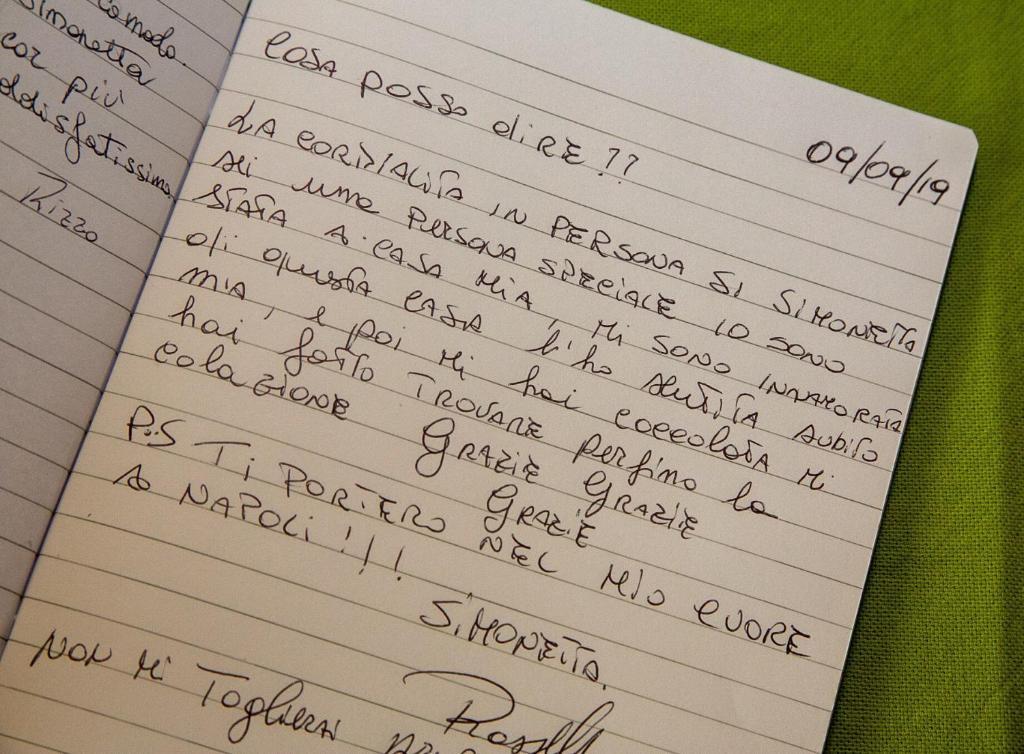 comodo.
Simonetta
più
Rizzo
09/09/19
COSA POSSO diRE ??
LA CORDIALITA IN PERSONA SI SIMONETTA
sei una PERSONA SPECIALE IO SONO
STATA A CASA MIA, Mi SONO INNAMORATA
di questa CASA l'ho SENTITA SUBITO
MIA, e poi Mi hai coccolata Mi
hai fatto TROVARE perfino la
colazIONE GRAZIE GRAZIE
GRAZIE
P.S Ti PORTERO NEL MIO CUORE
A NAPOLI!!!
SIMONETTA.
NON Mi Toglierai